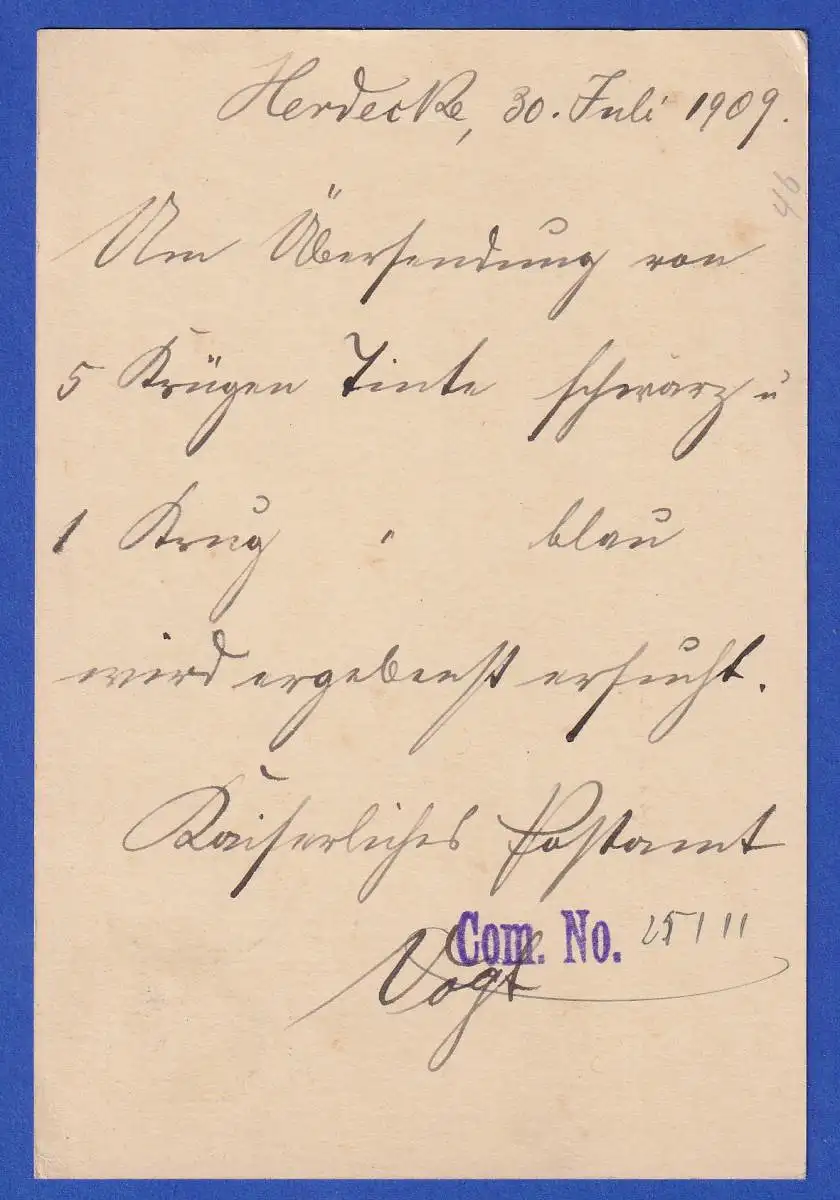 Herdecke, 30. Juli 1909.
46
Um Übersendung von
5 Krügen Tinte schwarz u
1 Krug " blau
wird ergebenst ersucht.
Kaiserliches Postamt
Com. No.
Vogt